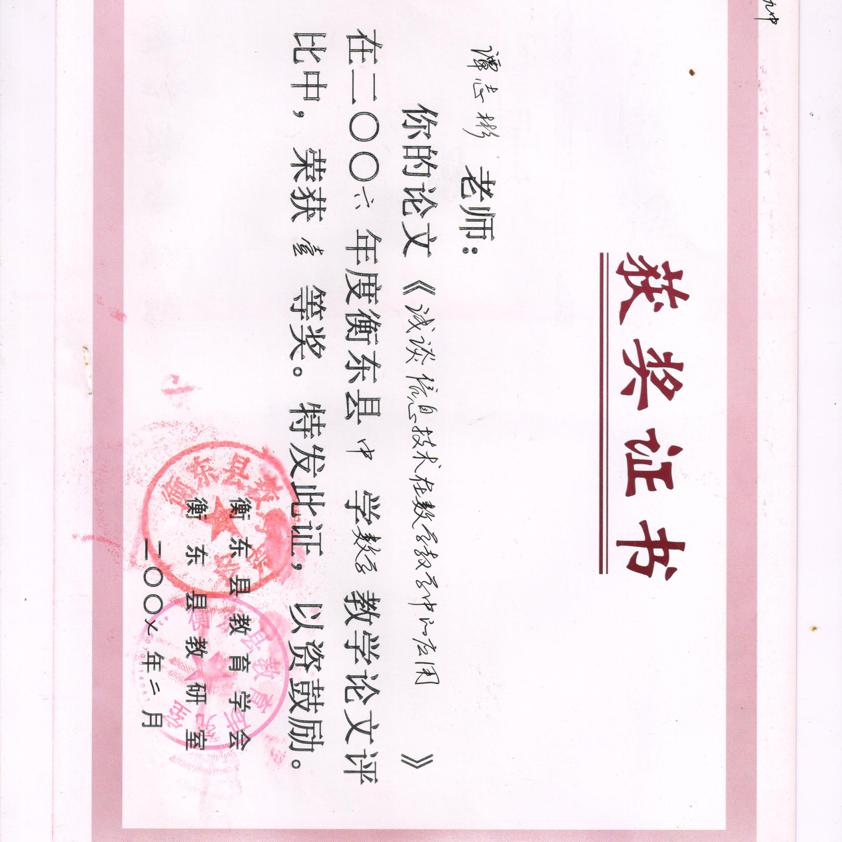 九中
获奖证书
谭志彬 老师:
你的论文《试谈信息技术在数学教学中的应用》
在二〇〇六年度衡东县中学数学教学论文评
比中,荣获壹等奖。特发此证,以资鼓励。
衡东县教育学会
衡东县教研室
二〇〇七年二月